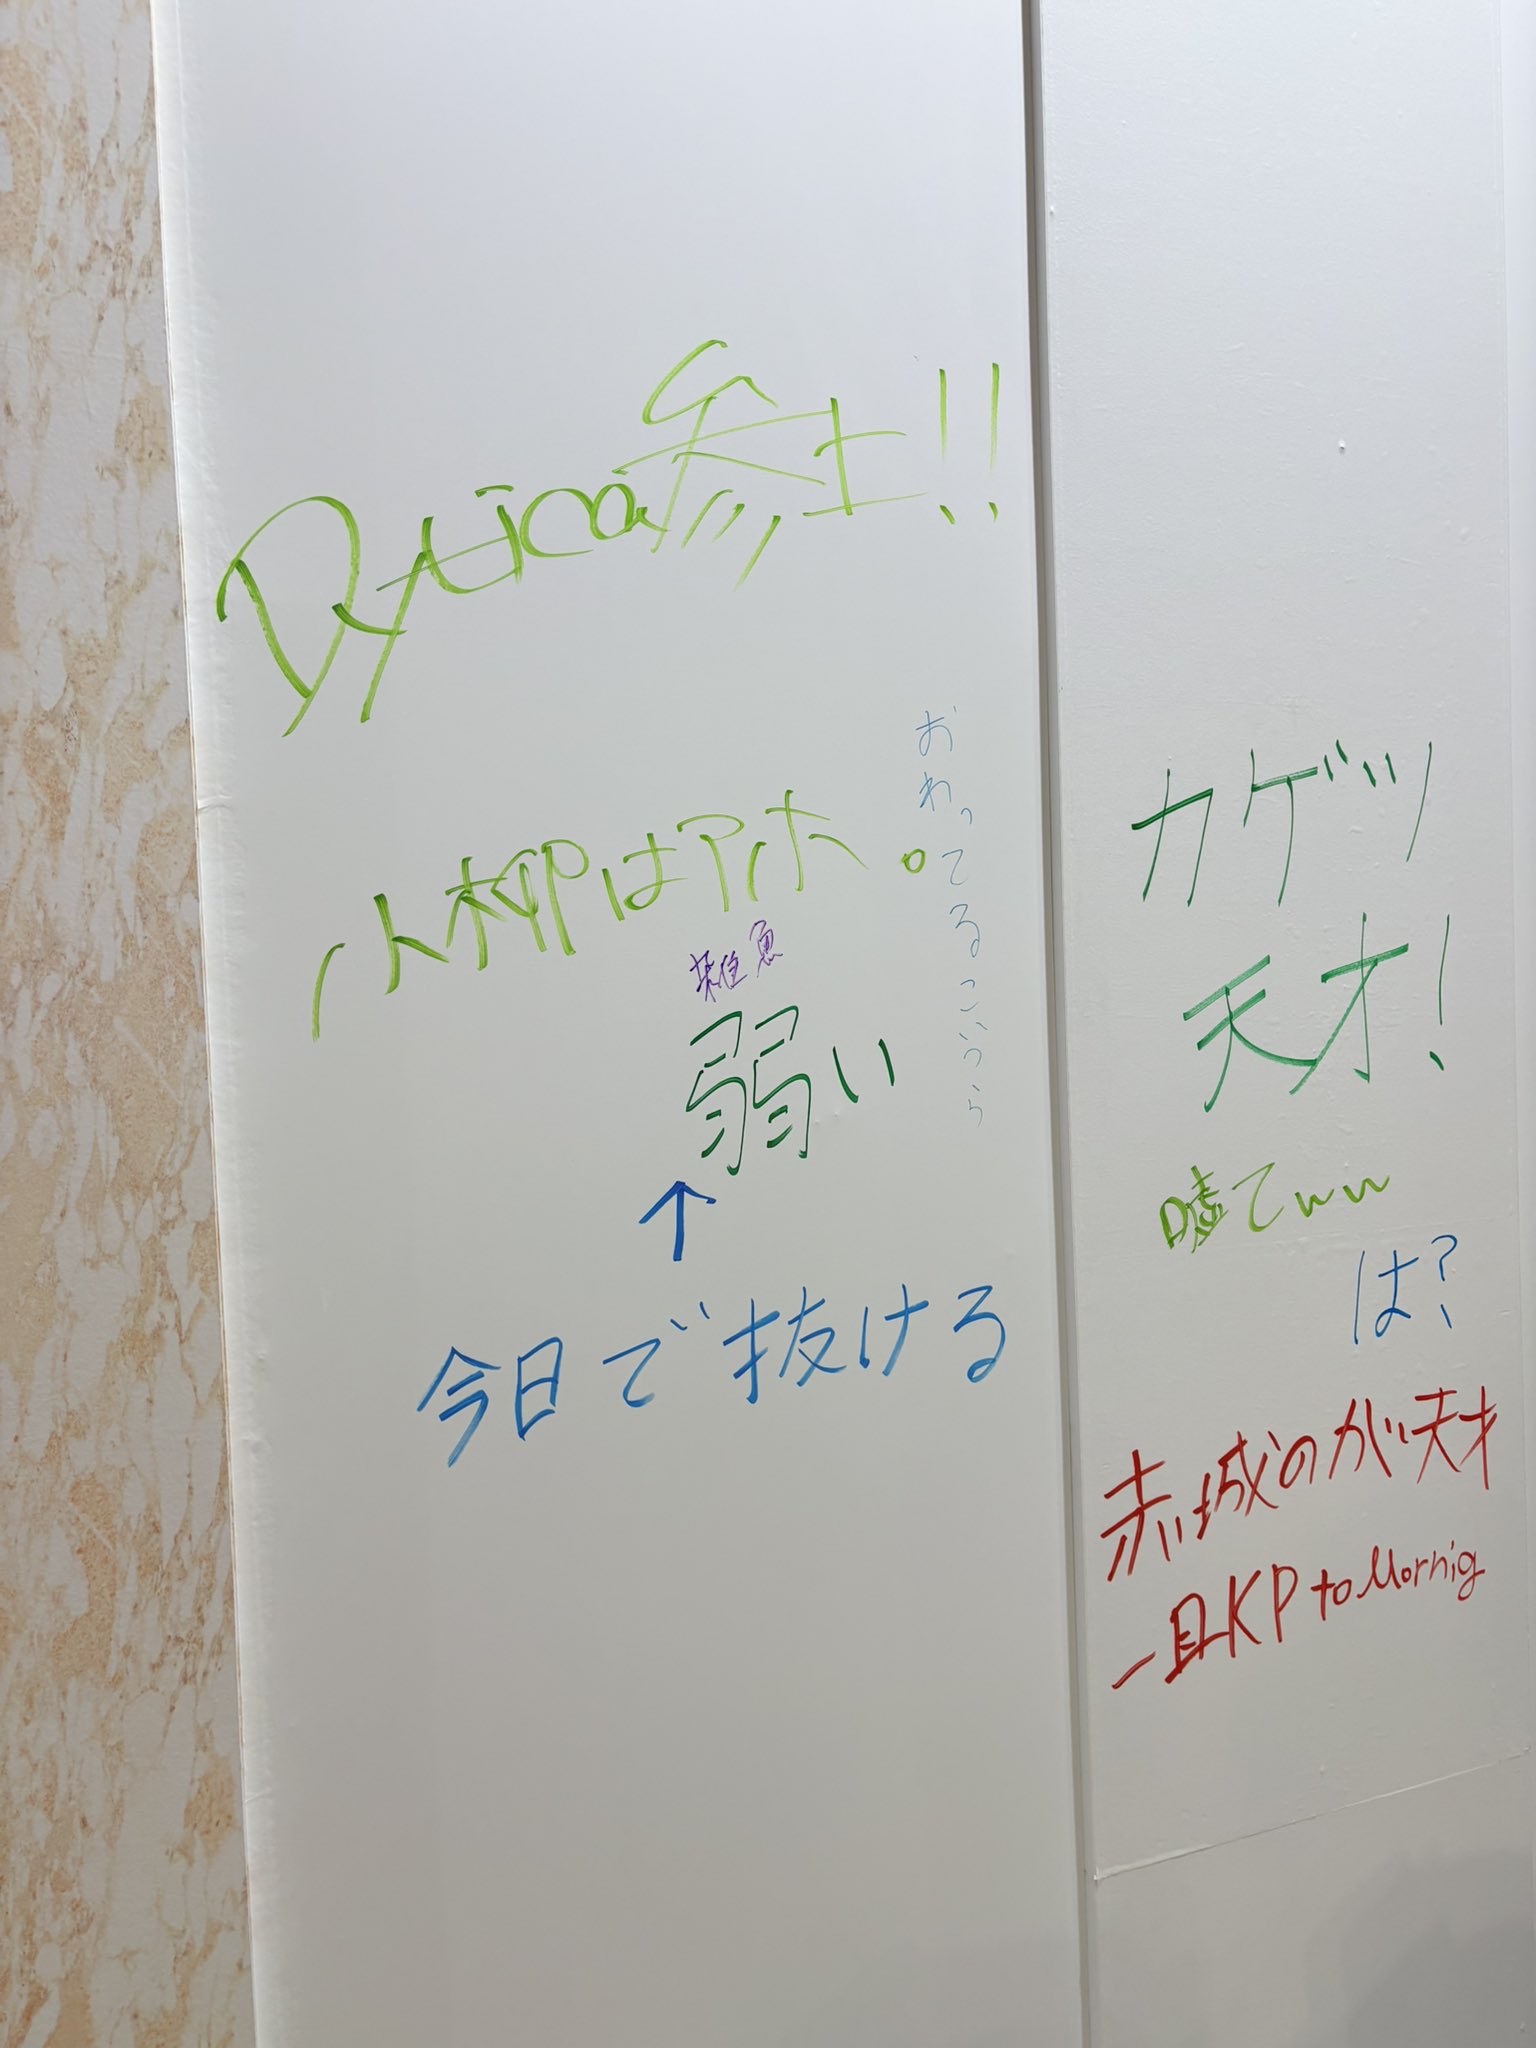 Dytica参上!!
小柳はアホ。
おわってるこいつら
雑魚
弱い
↑
今日で抜ける
カゲツ
天才!
嘘でww
は?
赤城のが天才
一旦KP to Mornig